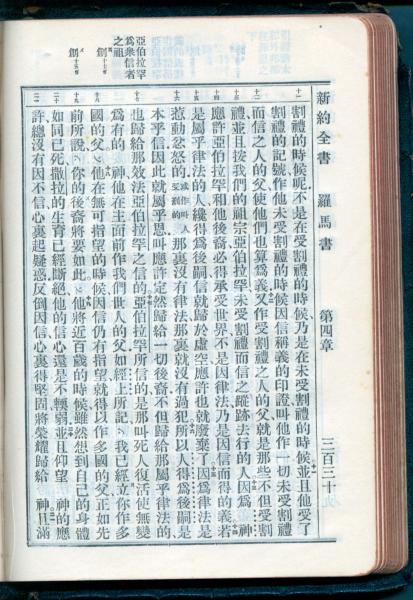 新約全書 羅馬書 第四章 三百三十
割禮的時候呢不是在受割禮的時候乃是在未受割禮的時候並且他受了
割禮的記號作他未受割禮的時候因信稱義的印證叫他作一切未受割禮
而信之人的父使他們也算爲義又作受割禮之人的父就是那些不但受割
禮並且按我們的祖宗亞伯拉罕未受割禮而信之蹤跡去行的人因爲 神
應許亞伯拉罕和他後裔必得承受世界不是因律法乃是因信而得的義若
是屬乎律法的人纔得爲後嗣信就歸於虛空應許也就廢棄了因爲律法是
惹動忿怒的或作叫人受刑的那裏沒有律法那裏就沒有過犯所以人得爲後嗣是
本乎信因此就屬乎恩叫應許定然歸給一切後裔不但歸給那屬乎律法的
也歸給那效法亞伯拉罕之信的亞伯拉罕所信的是那叫死人復活使無變
爲有的 神他在主面前作我們世人的父如經上所記我已經立你作多
國的父他在無可指望的時候因信仍有指望就得以作多國的父正如先
前所說你的後裔將要如此他將近百歲的時候雖然想到自己的身體
如同已死撒拉的生育已經斷絕他的信心還是不輭弱並且仰望 神的應
許總沒有因不信心裏起疑惑反倒因信心裏得堅固將榮耀歸給 神且滿
亞伯拉罕
爲衆信者
之祖
創十七章
創十五章
十一
十二
十三
十四
十五
十六
十七
十八
十九
二十